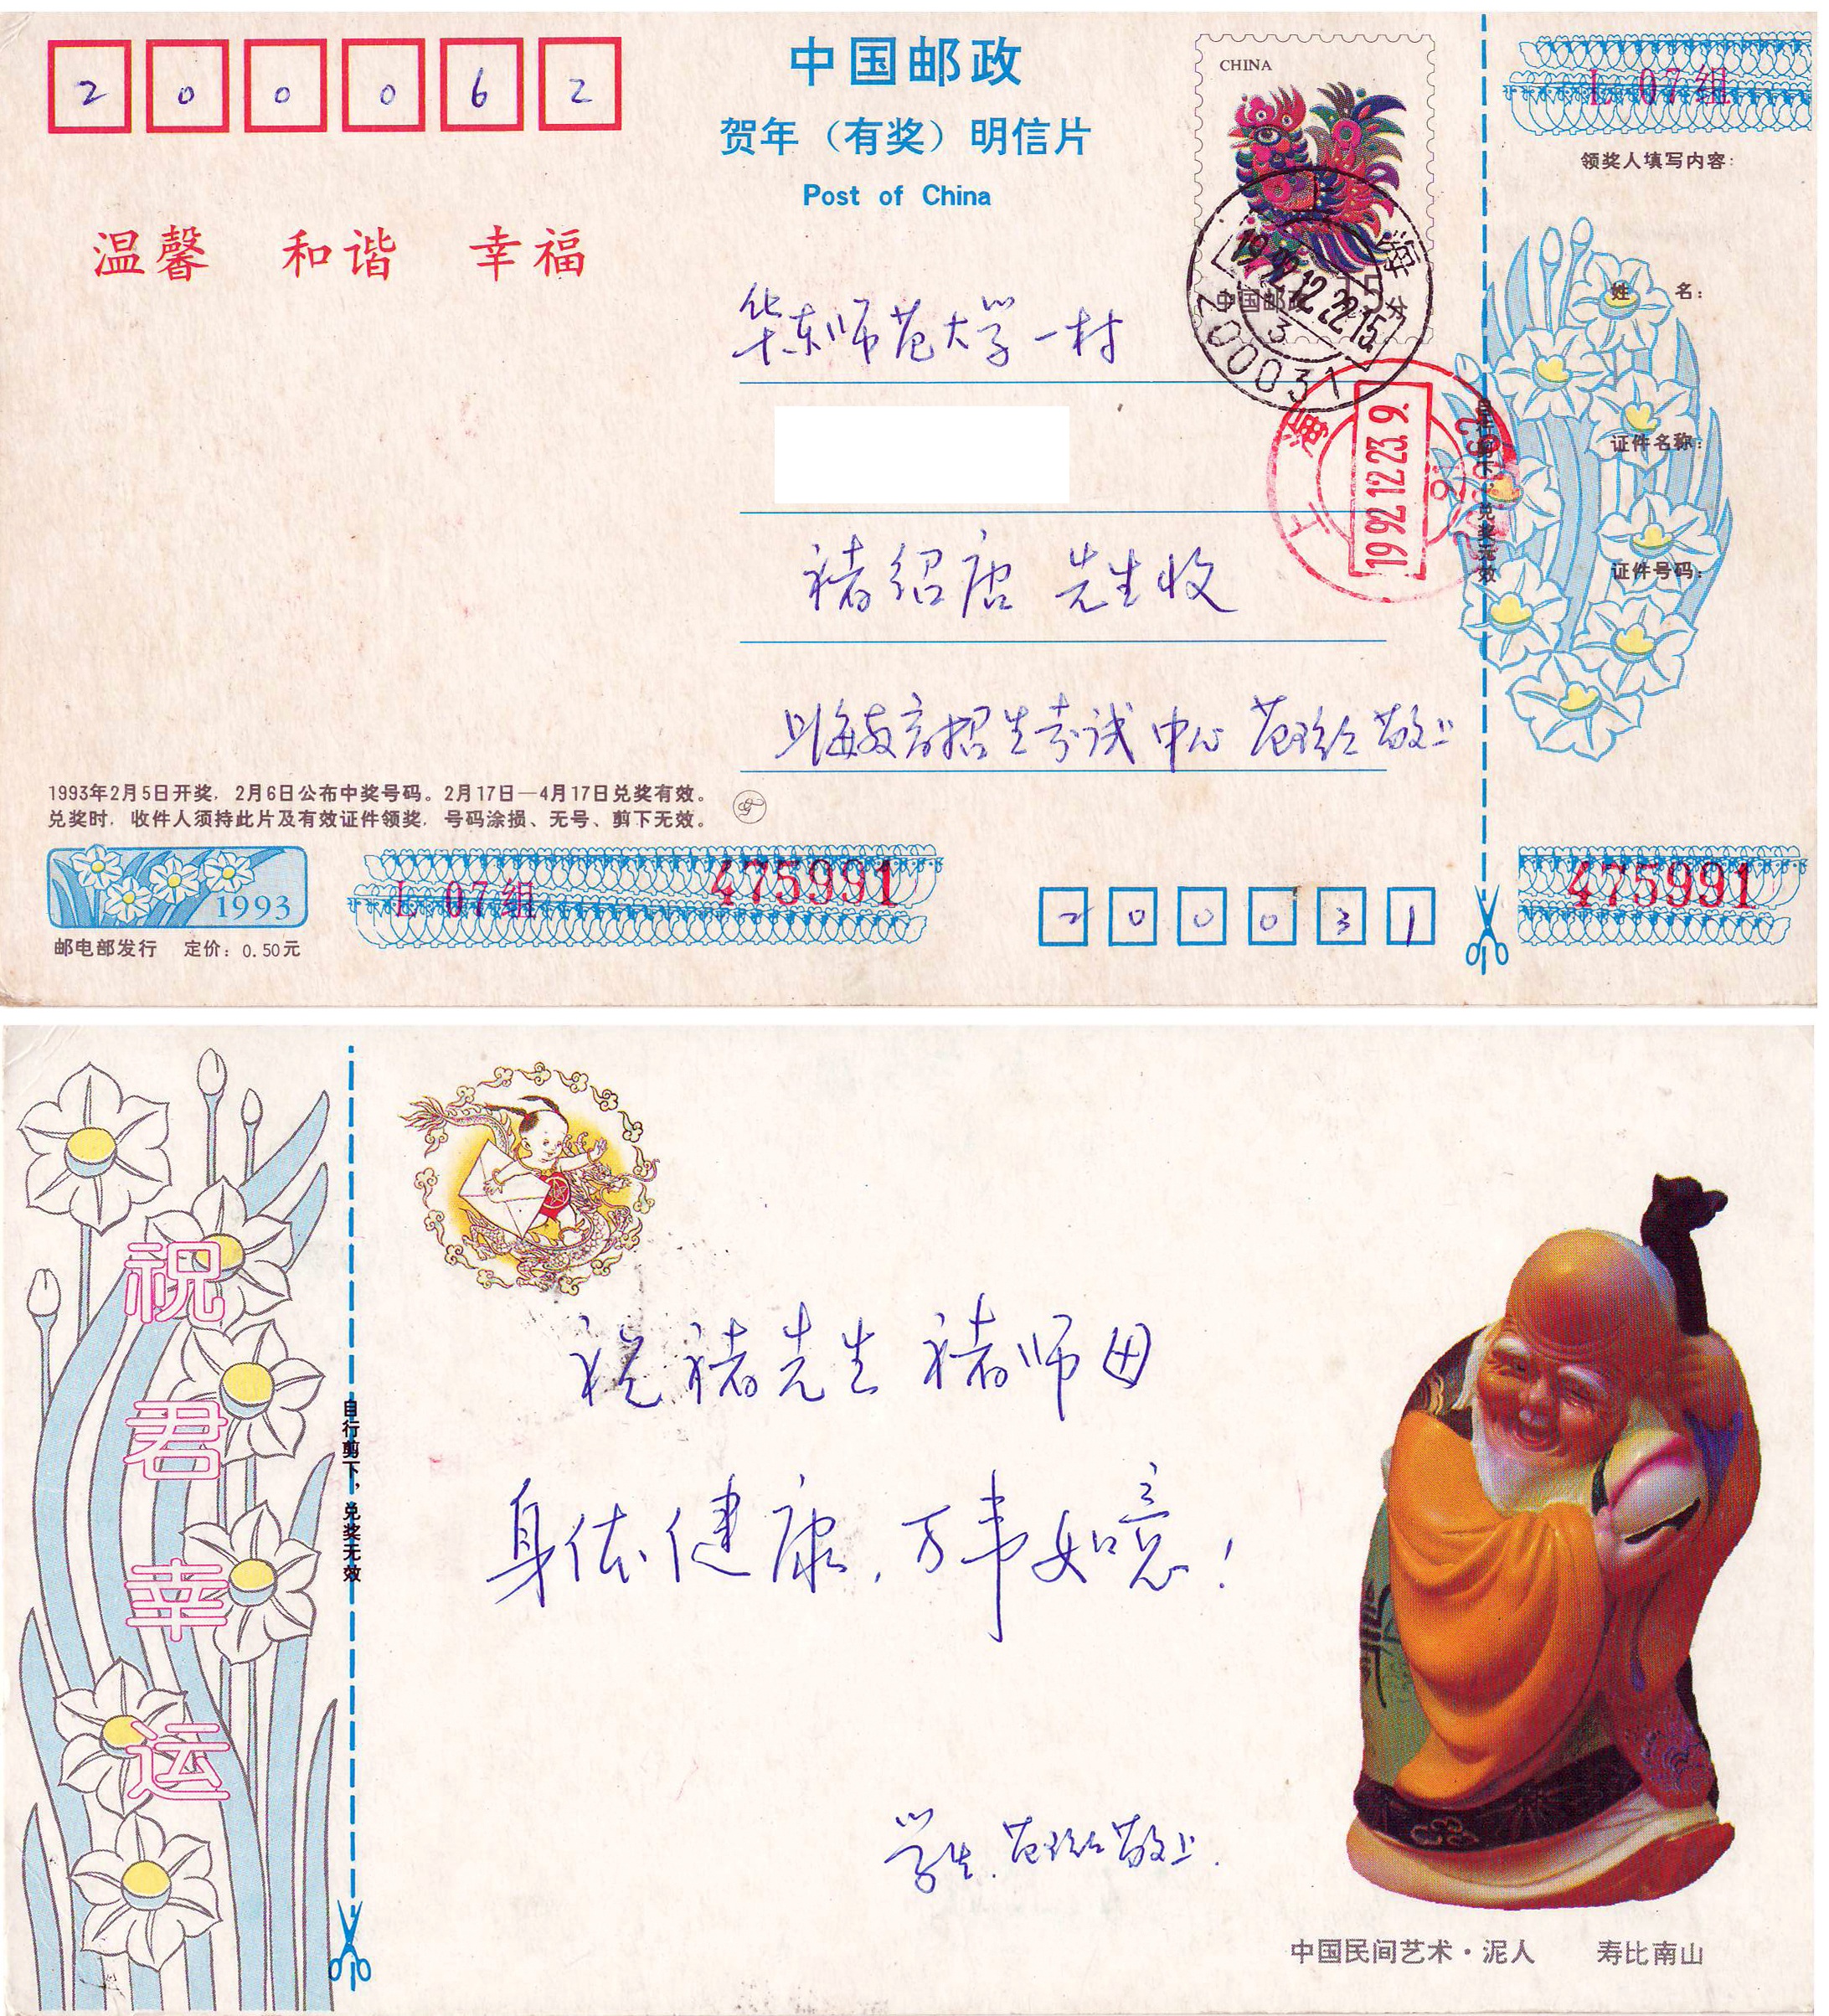 2 0 0 0 6 2
中国邮政
贺年（有奖）明信片
Post of China
CHINA
中国邮政
L 07组
领奖人填写内容:
温馨 和谐 幸福
姓 名:
华东师范大学一村
上海
1992.12.22.15
3
200031
上海
1992.12.23.9.
证件名称:
褚绍唐 先生收
证件号码:
上海教育招生考试中心 敬上
1993年2月5日开奖，2月6日公布中奖号码。2月17日—4月17日兑奖有效。
兑奖时，收件人须持此片及有效证件领奖，号码涂损、无号、剪下无效。
1993
L 07组
475991
2 0 0 0 3 1
475991
邮电部发行 定价: 0.50元
祝君幸运
自行剪下，兑奖无效
祝褚先生 褚师母
身体健康，万事如意！
学生 敬上.
中国民间艺术·泥人 寿比南山